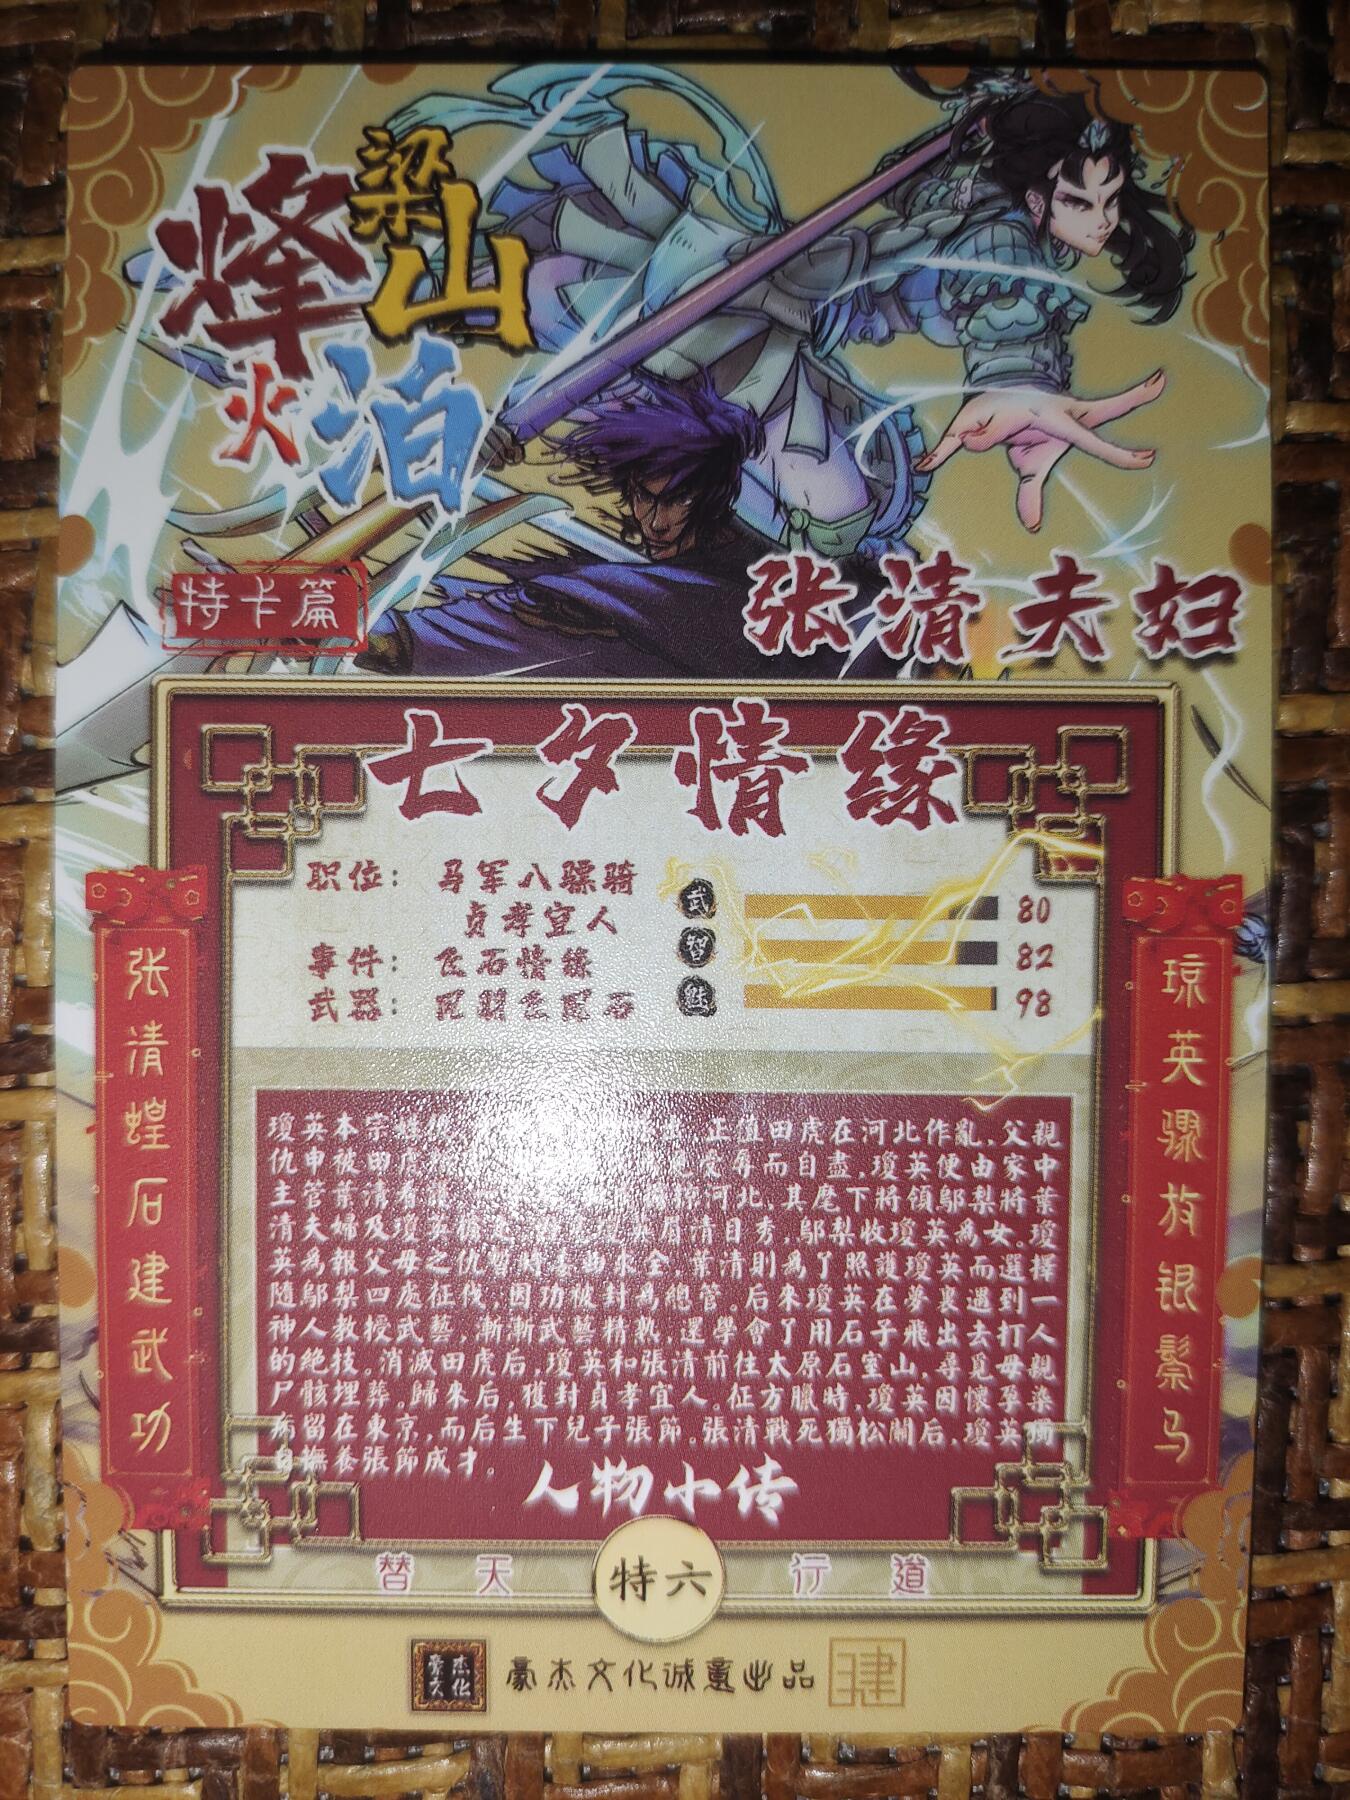 烽火
梁山泊
特卡篇
张清夫妇
七夕情缘
职位： 马军八骠骑
贞孝宜人
事件： 飞石情缘
武器：
武 80
智 82
魅 98
张清蝗石建武功
琼英骤放银鬃马
瓊英本宗 正值田虎在河北作亂,父親
仇申被田虎 受辱而自盡,瓊英便由家中
主管葉清看 河北,其麾下將領鄔梨將葉
清夫婦及瓊英 眉清目秀,鄔梨收瓊英為女。瓊
英為報父母之仇暫時委曲求全,葉清則為了照護瓊英而選擇
隨鄔梨四處征伐,因功被封為總管。后來瓊英在夢裏遇到一
神人教授武藝,漸漸武藝精熟,還學會了用石子飛出去打人
的絶技。消滅田虎后,瓊英和張清前往太原石室山,尋覓母親
尸骸埋葬。歸來后,獲封貞孝宜人。征方臘時,瓊英因懷孕染
病留在東京,而后生下兒子張節。張清戰死獨松關后,瓊英獨
自撫養張節成才。
人物小传
替天 特六 行道
豪杰文化
豪杰文化诚意出品